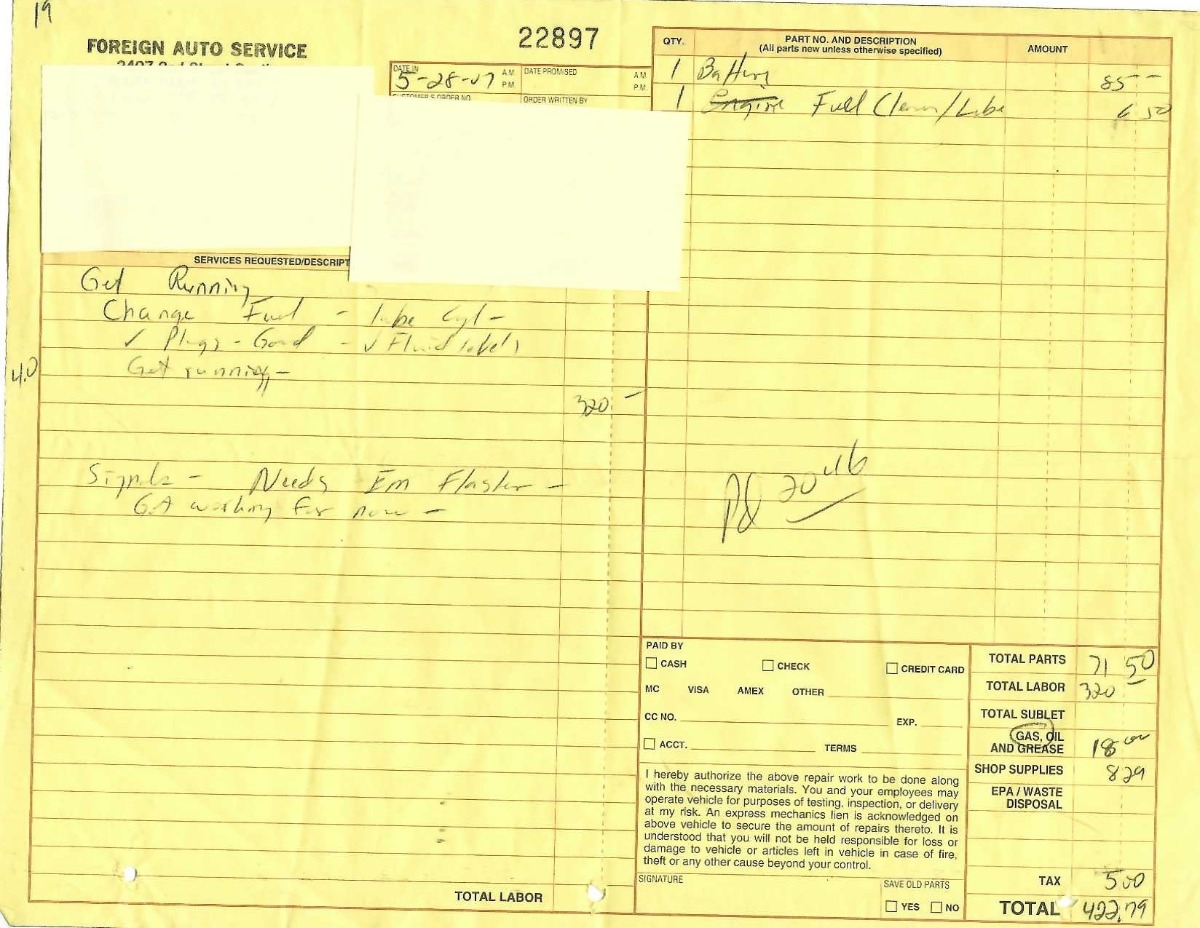 19
FOREIGN AUTO SERVICE
22897
DATE IN
5-28-07
A.M.
P.M.
DATE PROMISED
A.M.
P.M.
CUSTOMER'S ORDER NO.
ORDER WRITTEN BY
QTY.
PART NO. AND DESCRIPTION
(All parts new unless otherwise specified)
AMOUNT
1 Battery 85 --
1 Engine Fuel Cleaner/Lube 6 50
SERVICES REQUESTED/DESCRIPT
Get Running
Change Fuel - lube Cyl -
✓ Plugs - Good - ✓ Fluid levels
4.0
Get running -
320. -
Signals - Needs Em Flasher -
working for now -
Pd
TOTAL LABOR
PAID BY
CASH CHECK CREDIT CARD
MC VISA AMEX OTHER
CC NO. EXP.
ACCT. TERMS
I hereby authorize the above repair work to be done along
with the necessary materials. You and your employees may
operate vehicle for purposes of testing, inspection, or delivery
at my risk. An express mechanics lien is acknowledged on
above vehicle to secure the amount of repairs thereto. It is
understood that you will not be held responsible for loss or
damage to vehicle or articles left in vehicle in case of fire,
theft or any other cause beyond your control.
SIGNATURE
SAVE OLD PARTS
YES NO
TOTAL PARTS 71 50
TOTAL LABOR 320 -
TOTAL SUBLET
GAS, OIL
AND GREASE 18 00
SHOP SUPPLIES 8 29
EPA / WASTE
DISPOSAL
TAX 5 00
TOTAL 422.79